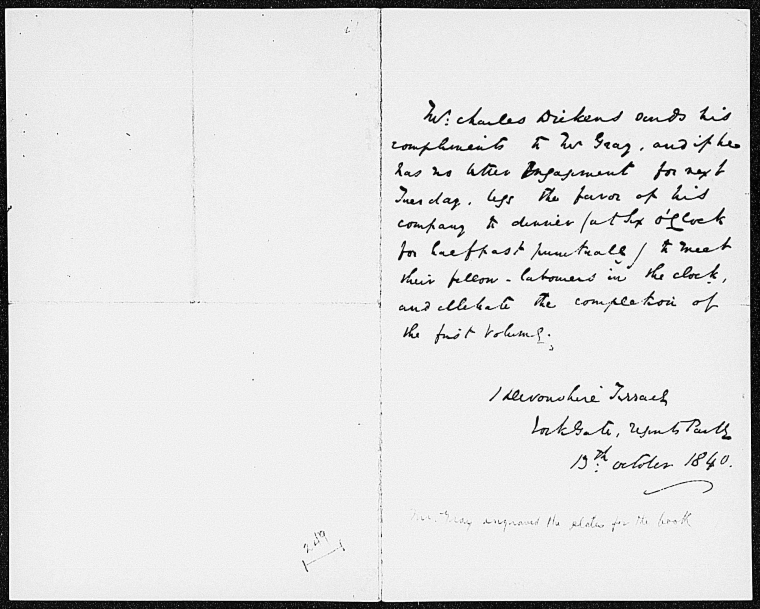 Mr. Charles Dickens sends his
compliments to Mr Gray, and if he
has no better Engagement for next
Tuesday, begs the favor of his
company to dinner (at Six o'Clock
for half past punctually) to meet
their fellow-labourers in the clock,
and celebrate the completion of
the first Volume.
1 Devonshire Terrace
York Gate, Regents Park
13th. October 1840.
Mr. Gray engraved the plates for the book
219